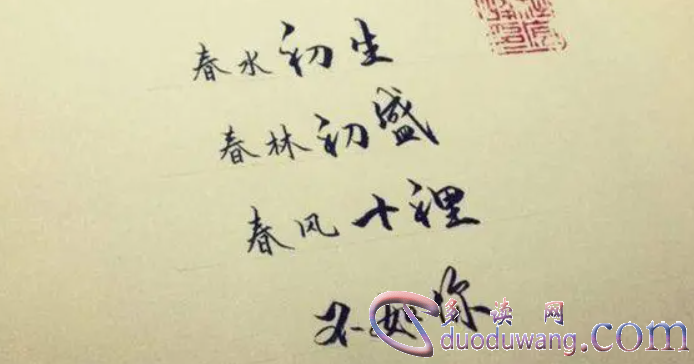 春水初生
春林初盛
春风十裡
不如你
多读网
duoduwang.com